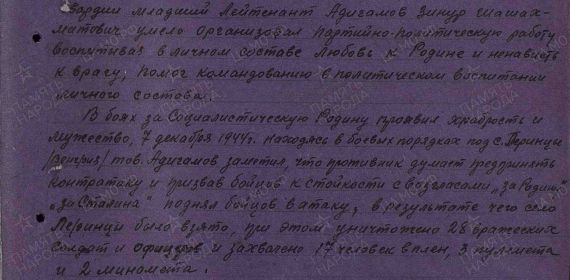 Гвардии младший Лейтенант Адигамов Зинур Шашах-
матович умело организовал партийно-политическую работу
воспитывая в личном составе любовь к Родине и ненависть
к врагу, помог командованию в политическом воспитании
личного состава.
В боях за Социалистическую Родину проявил храбрость и
мужество, 7 декабря 1944г. находясь в боевых порядках под с.
/венгрия/ тов. Адигамов заметил, что противник думает предпринять
контратаку и призвав бойцов к стойкости с возгласами „за Родину"
„за Сталина" поднял бойцов в атаку, в результате чего село
было взято, при этом уничтожено 28 вражеских
солдат и офицеров и захвачено 17 человек в плен, 3 пулемета
и 2 миномета.
ПАМЯТЬ НАРОДА